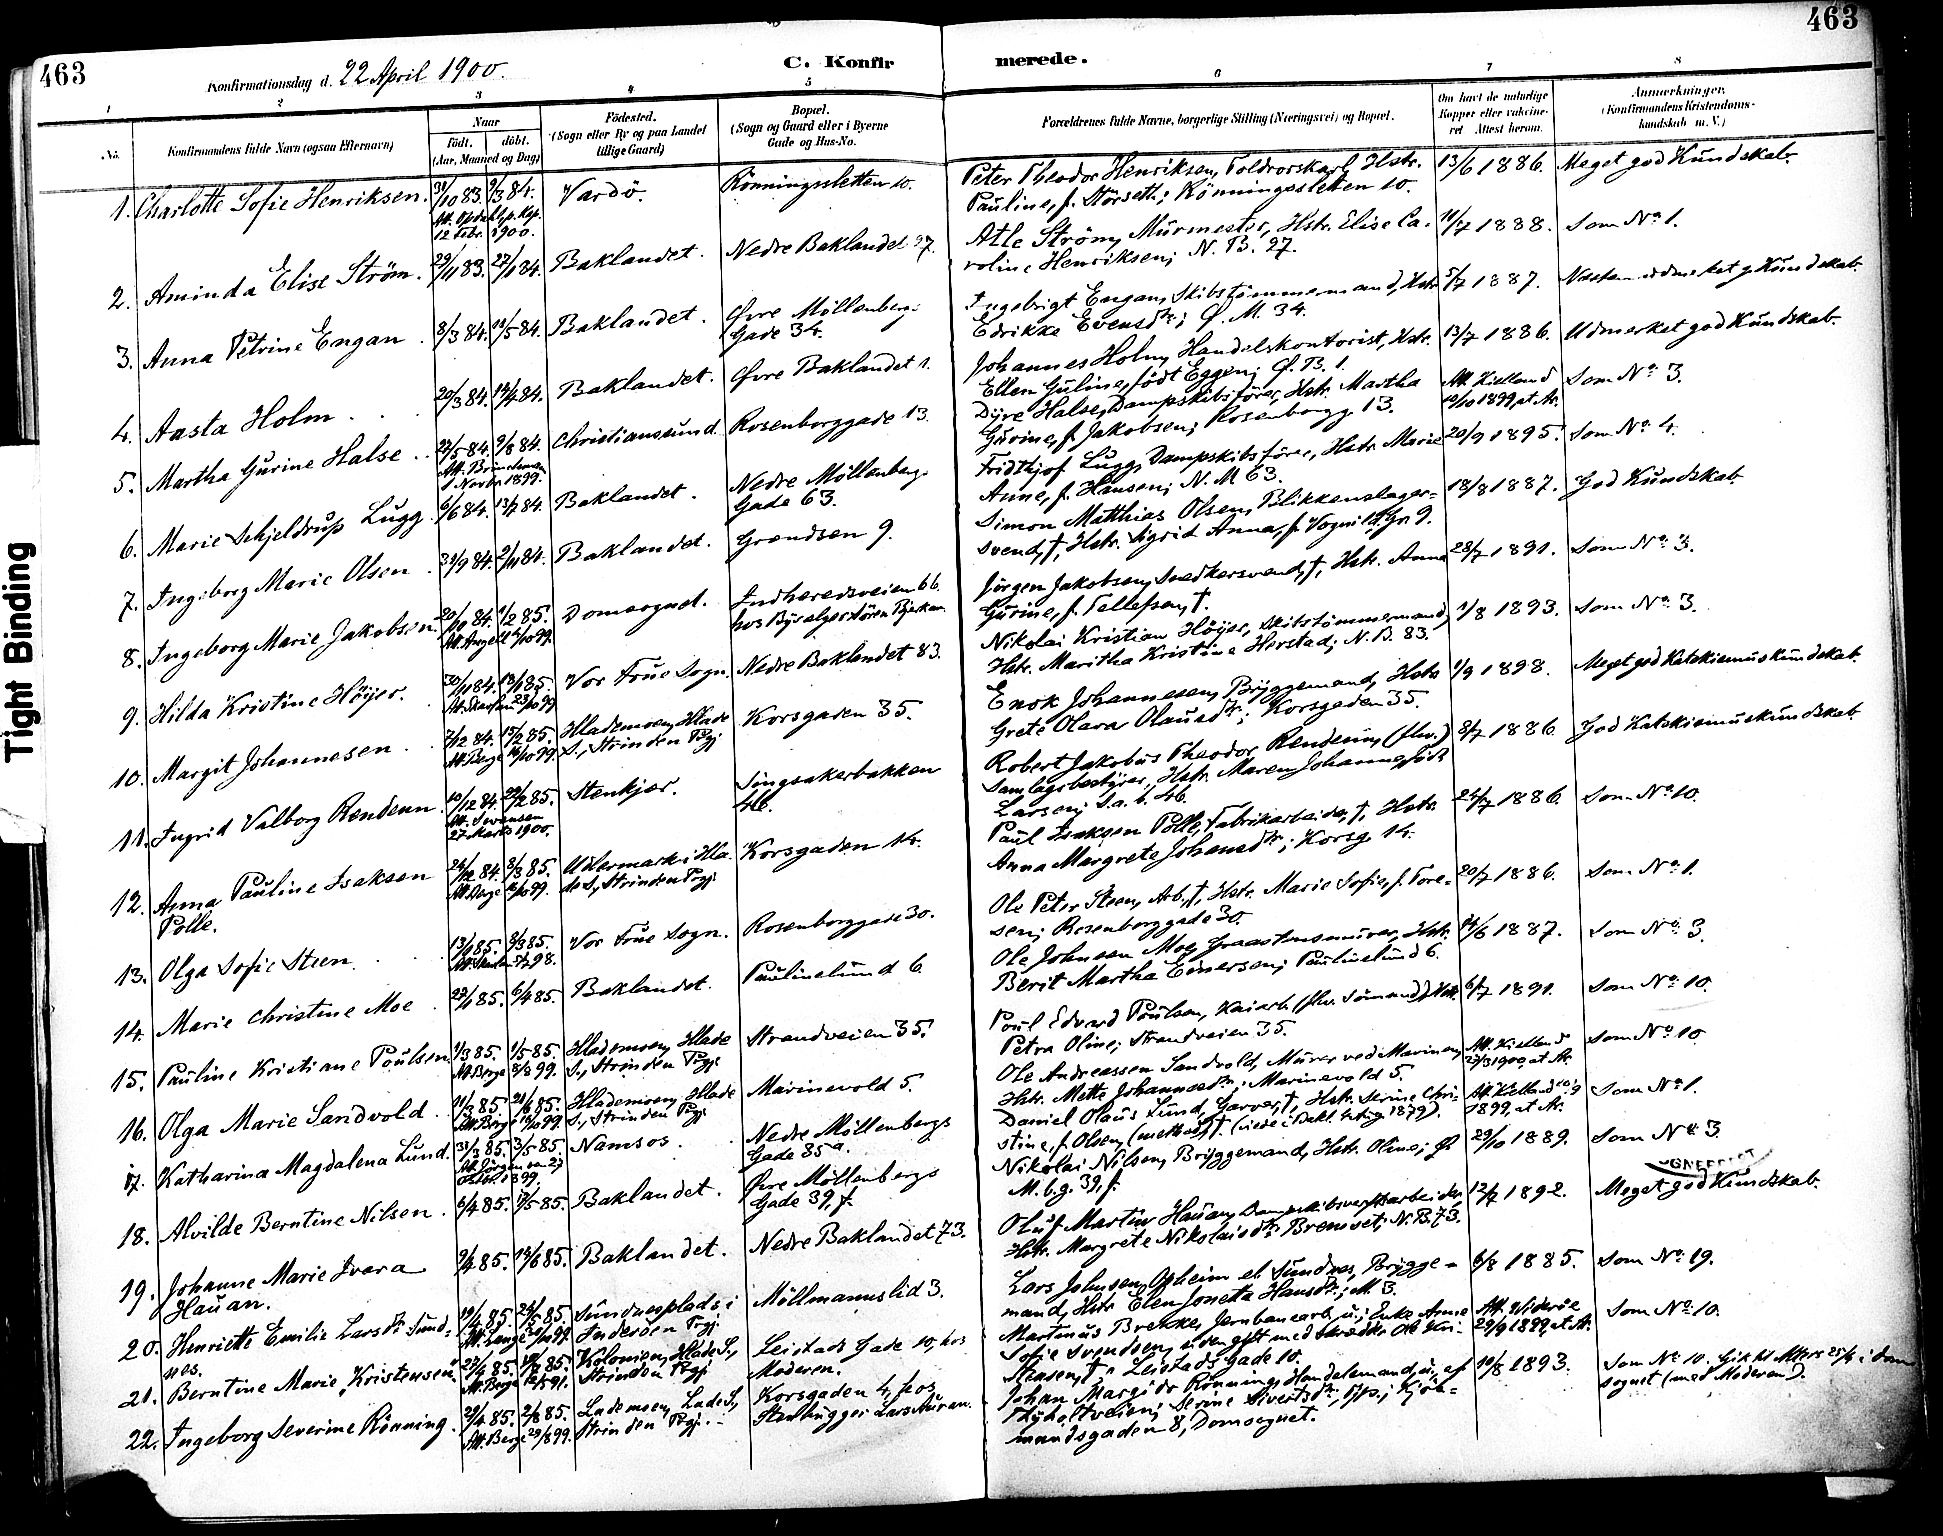 463
463
Konfirmationsdag d. 22 April 1900.
C. Konfirmerede.
1 2 3 4 5 6 7 8
No.
Konfirmandens fulde Navn (ogsaa Efternavn)
Naar
Födt. döbt.
(Aar, Maaned og Dag)
Födested.
(Sogn eller By og paa Landet
tillige Gaard)
Bopæl.
(Sogn og Gaard eller i Byerne
Gade og Hus-No.
Forældrenes fulde Navne, borgerlige Stilling (Næringsvei) og Bopæl.
Om havt de naturlige
Kopper eller vaccine-
ret Attest herom.
Anmærkninger.
(Konfirmandens Kristendoms-
kundskab m. V.)
1. Charlotte Sofie Henriksen. 31/10 83. 9/3 84. Vardö. Rönningsletten 10. Peter Theodor Henriksen, Toldrorskarl, Hstr. 13/6 1886. Meget god Kundskab.
12 Febr. 1900. Pauline, f. Störseth; Rönningsletten 10.
2. Aminda Elise Ström. 29/11 83. 27/1 84. Baklandet. Nedre Baklandet 27. Atle Ström, Murmester, Hstr. Elise Ca- 10/7 1888. Som No. 1.
roline Henriksen; N. B. 27.
3. Anna Petrine Engan. 8/3 84. 18/5 84. Baklandet. Øvre Möllenberg- Ingebrigt Engan, Skibstömmermand, Hstr. 5/7 1887. Næsten udmerket g. Kundskab.
Gade 34. Edrikke Evensdtr; Ø. M. 34.
4. Aasta Holm. 20/3 84. 14/4 84. Baklandet. Øvre Baklandet 1. Johannes Holm, Handelskontorist, Hstr. 13/7 1886. Udmerket god Kundskab.
Ellen Guline, födt Eggen; Ø. B. 1.
5. Martha Gurine Halse. 23/5 84. 9/8 84. Christianssund. Rosenborggade 13. Dyre Halse, Dampskibsförer, Hstr. Martha Att. Kielland Som No. 3.
1 Novbr. 1899. Gurine, f. Jakobsen; Rosenborgg. 13. 19/10 1899, at Ar.
6. Marie Schjeldrup Lugg. 6/6 84. 13/7 84. Baklandet. Nedre Möllenberg- Fridthjof Lugg, Dampskibsförer, Hstr. Marie 20/9 1895. Som No. 4.
Gade 63. Anne, f. Hansen; N. M 63.
7. Ingeborg Marie Olsen. 9 84. 2/11 84. Baklandet. Grændsen 9. Simon Matthias Olsen, Blikkenslager- 18/8 1887. God Kundskab.
svend, †, Hstr. Sigrid Anna, f. Vognild, Gr. 9.
8. Ingeborg Marie Jakobsen. 20/11 84. 1/2 85. Domsognet. Indherredsveien 66. Jörgen Jakobsen, Snedkersvend, †, Hstr. Anna 28/7 1891. Som No. 3.
Gurine, f. Tellefsen, †.
9. Hilda Kristine Höyer. 30/11 84. 18/1 85. Vor Frue Sogn. Nedre Baklandet 83. Nikolai Kristian Höyer, Skibstömmermand, 1/8 1893. Som No. 3.
Hstr. Maritha Kristine Herstad; N. B. 83.
10. Margit Johannesen. 7/12 84. 15/2 85. Hlademoen, Hlade Korsgaden 35. Enok Johannesen, Bryggemand, Hstr. 1/9 1898. Meget god Katekismuskundskab.
Att. Berge 16/10 99. S., Strinden Pgj. Grete Olava Olausdtr; Korsgaden 35.
11. Ingrid Valborg Rendenn. 10/12 84. 22/2 85. Stenkjær. Singsakerbakken Robert Jakobus Theodor Rendenn, (fhv.) 8/7 1886. God Katekismuskundskab.
27 Marts 1900. 46. Samlagsbestyrer, Hstr. Maren Johanne, födt
Larsen; S.a.b. 46.
12. Anna Pauline Isaksen 24/12 84. 8/3 85. Uldermark i Hla- Korsgaden 14. Paul Isaksen Polle, Fabrikarbeider, †, Hstr. 24/7 1886. Som No. 10.
Polle. Att. Berge 16/10 99. de S., Strinden Pgj. Anna Margrete Johansdtr; Korsg. 14.
13. Olga Sofie Steen. 13/1 85. 8/3 85. Vor Frue Sogn. Rosenborggade 30. Ole Peter Steen, Arb., †, Hstr. Marie Sofie, f. Tore- 20/7 1886. Som No. 1.
sen; Rosenborggade 30.
14. Marie Christine Moe. 27/1 85. 6/4 85. Baklandet. Paulinelund 6. Ole Johnsen Moe, Graastensmurer, Hstr. 14/6 1887. Som No. 3.
Berit Martha Einersen; Paulinelund 6.
15. Pauline Kristiane Poulsen. 1/3 85. 1/5 85. Hlademoen, Hlade Strandveien 35. Poul Edvard Poulsen, Kaiarb. (fhv. Sömand), Hstr. 6/7 1891. Som No. 10.
Att. Berge 8/8 99. S., Strinden Pgj. Petra Oline; Strandveien 35.
16. Olga Marie Sandvold. 11/3 85. 85. Hlademoen, Hlade Marinevold 5. Ole Andreassen Sandvold, Murer ved Marinen, Att. Kielland Som No. 10.
Att. Berge 99. S., Strinden Pgj. Hstr. Mette Johannsdtr; Marinevold 5. 27/3 1900, at Ar.
17. Katharina Magdalena Lund. 31/3 85. 3/5 85. Namsos. Nedre Möllenbergs Daniel Olaus Lund, Garver, †, Hstr. Serine Chri- Att. Kielland Som No. 1.
Gade 85 a. stine, f. Olsen, †. (viede i Bakl. 1879). 1899, at Ar.
18. Alvilde Berntine Nilsen. 6/4 85. 17/5 85. Baklandet. Øvre Möllenbergs Nikolai Nilsen, Bryggemand, Hstr. Oline; Ø. 29/10 1889. Som No. 3.
Gade 39, f. M. b. g. 39, f.
19. Johanne Marie Ivara 9/4 85. 14/6 85. Baklandet. Nedre Baklandet 73. Oluf Martin Hauan, Dampskibsverftsarbeider, 12/7 1892. Meget god Kundskab.
Hauan. Hstr. Margrete Nikolaisdtr Bremset; N. B. 73.
20. Henriette Emilie Larsdtr Sund- 19/4 85. 24/5 85. Sundnesplads i Möllmannslid 3. Lars Johnsen Opheim el. Sundnes, Brygge- 6/8 1885. Som No. 19.
nes. Inderöen Pgj. mand, Hstr. Elen Jonetta Hansdtr; M. 3.
21. Berntine Marie Kristensen. 27/4 85. 85. Kolonien, Hlade S., Leistads Gade 10, hos Martinus Brekke, Jernbanearb., u. i Enke Anne Som No. 10.
Att. Berge 91. Strinden Pgj. Moderen. Sofie Svendsen, Ole Kri- 29/9 1899, at Ar.
stensen, †; Leistads Gade 10.
22. Ingeborg Severine Rönning. 29/4 85. 2/8 85. Lademoen, Lade S., Korsgaden 4, hos Johan Margido Rönning, Handelsmand, u. af 10/8 1893. Som No. 10. i Dom-
Att. Berge 29/8 99. Strinden Pgj. Stenhugger Lars Auran. Thyholtveien; Serine Sivertsdtr, Kjöb- sognet (med Moderen).
mandsgaden 8, Domsognet.
Tight Binding